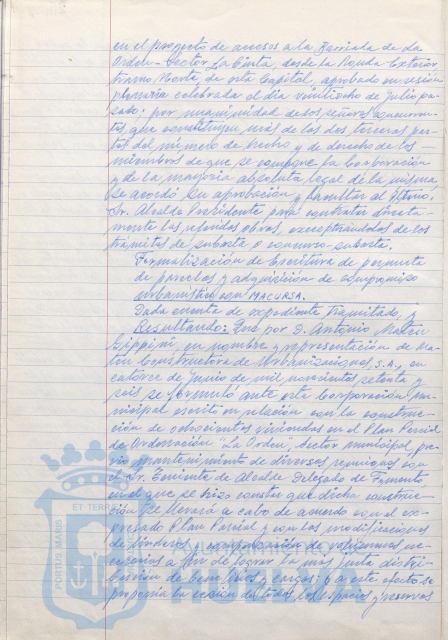 en el proyecto de accesos a la Barriada de La
Orden - Sector La Cinta, desde la Ronda Exterior
tramo Norte de esta Capital, aprobado en sesión
plenaria celebrada el día veintiocho de julio pa-
sado; por unanimidad de los señores concurren-
tes, que constituyen más de las dos terceras par-
tes del número de hecho y de derecho de los
miembros de que se compone la Corporación
y de la mayoría absoluta legal de la misma,
se acordó su aprobación y facultar al Iltmo.
Sr. Alcalde Presidente para contratar directa-
mente las referidas obras, exceptuándolas de los
trámites de subasta o concurso-subasta.
Formalización de Escritura de permuta
de parcelas y adquisición de compromiso
urbanístico con MACURSA.
Dada cuenta de expediente tramitado, y
Resultando: Que por D. Antonio Martín
en nombre y representación de Ma-
Constructora de Urbanizaciones, S.A., en
catorce de junio de mil novecientos setenta y
seis se formuló ante esta Corporación Mu-
nicipal escrito en relación con la construc-
ción de ochocientas viviendas en el Plan Parcial
de Ordenación "La Orden", Sector municipal, pre-
vio mantenimiento de diversas reuniones con
el Sr. Teniente de Alcalde Delegado de Fomento,
en el que se hizo constar que dicha construc-
ción se llevará a cabo de acuerdo con el ex-
presado Plan Parcial y con las modificaciones
de linderos y compensación de volúmenes ne-
cesarios a fin de lograr la más justa distri-
bución de beneficios y cargas; y a este efecto se
proponía la cesión de todos los espacios y reservas
PORTUS MARIS ET TERRAE
AYUNTAMIENTO DE
HUELVA